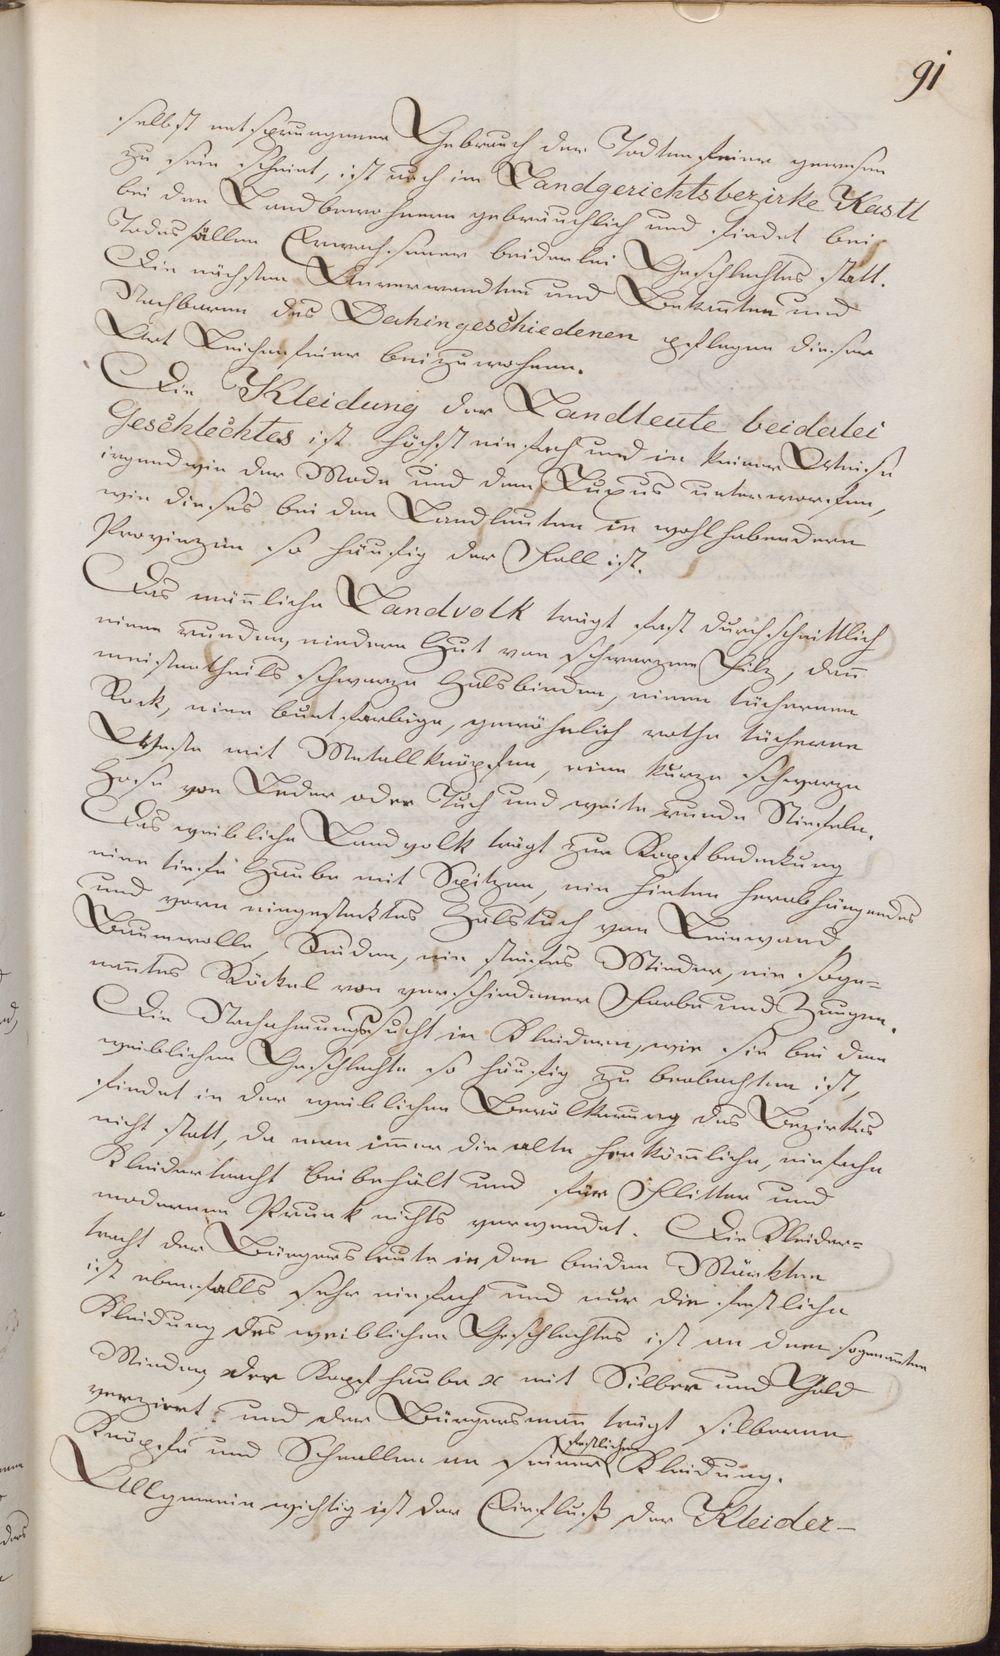 91
selbst entsprungener Gebrauch der Todtenfeier gewesen
zu sein scheint, ist auch im Landgerichtsbezirke Kastl
bei den Landbewohnern gebräuchlich und findet bei
Todesfällen Erwachsener beiderlei Geschlechtes statt.
Die nächsten Anverwandten und Bekannten und
Nachbaren des Dahingeschiedenen pflegen dieser
Art Leichenfeier beizuwohnen.
Die Kleidung der Landleute beiderlei
Geschlechtes ist höchst einfach und in keiner Weise
irgendwie der Mode und dem Luxus unterworfen,
wie dieses bei den Landleuten in wohlhabendern
Provinzen so häufig der Fall ist.
Das männliche Landvolk trägt fast durchschnittlich
einen runden, niedern Hut von schwarzem Filz, dañ
meistentheils schwarze Halsbinden, einen tüchernen
Rock, eine buntfarbige, gewöhnlich rothe tücherne
Weste mit Metallknöpfen, eine kurze schwarze
Hose von Leder oder Tuch und weite runde Stiefeln.
Das weibliche Landvolk trägt zur Kopfbedeckung
eine tiefe Haube mit Spitzen, ein hinten herabhängendes
und vorn eingestecktes Halstuch von Leinwand
Baumwolle, Seiden, ein steifes Mieder, ein soge=
nañtes Röckel von verschiedener Farbe und Zeugen.
Die Nachahmungssucht in Kleidern, wie sie bei dem
weiblichen Geschlechte so häufig zu beobachten ist,
findet in der weiblichen Bevölkerung des Bezirkes
nicht statt, da man im̄er die alte herköm̄liche, einfache
Kleidertracht beibehält und für Flitter und
modernen Prunk nichts verwendet. Die Kleider=
tracht der Bürgersleute in den beiden Märkten
ist ebenfalls sehr einfach und nur die festliche
Kleidung des weiblichen Geschlechtes ist an dem sogenañten
Mieder, der Kopfhaube x mit Silber und Gold
verziert und der Bürgersmañ trägt silberne
Knöpfe und Schnallen an seiner festlichen Kleidung.
Allgemein wichtig ist der Einfluß der Kleider-